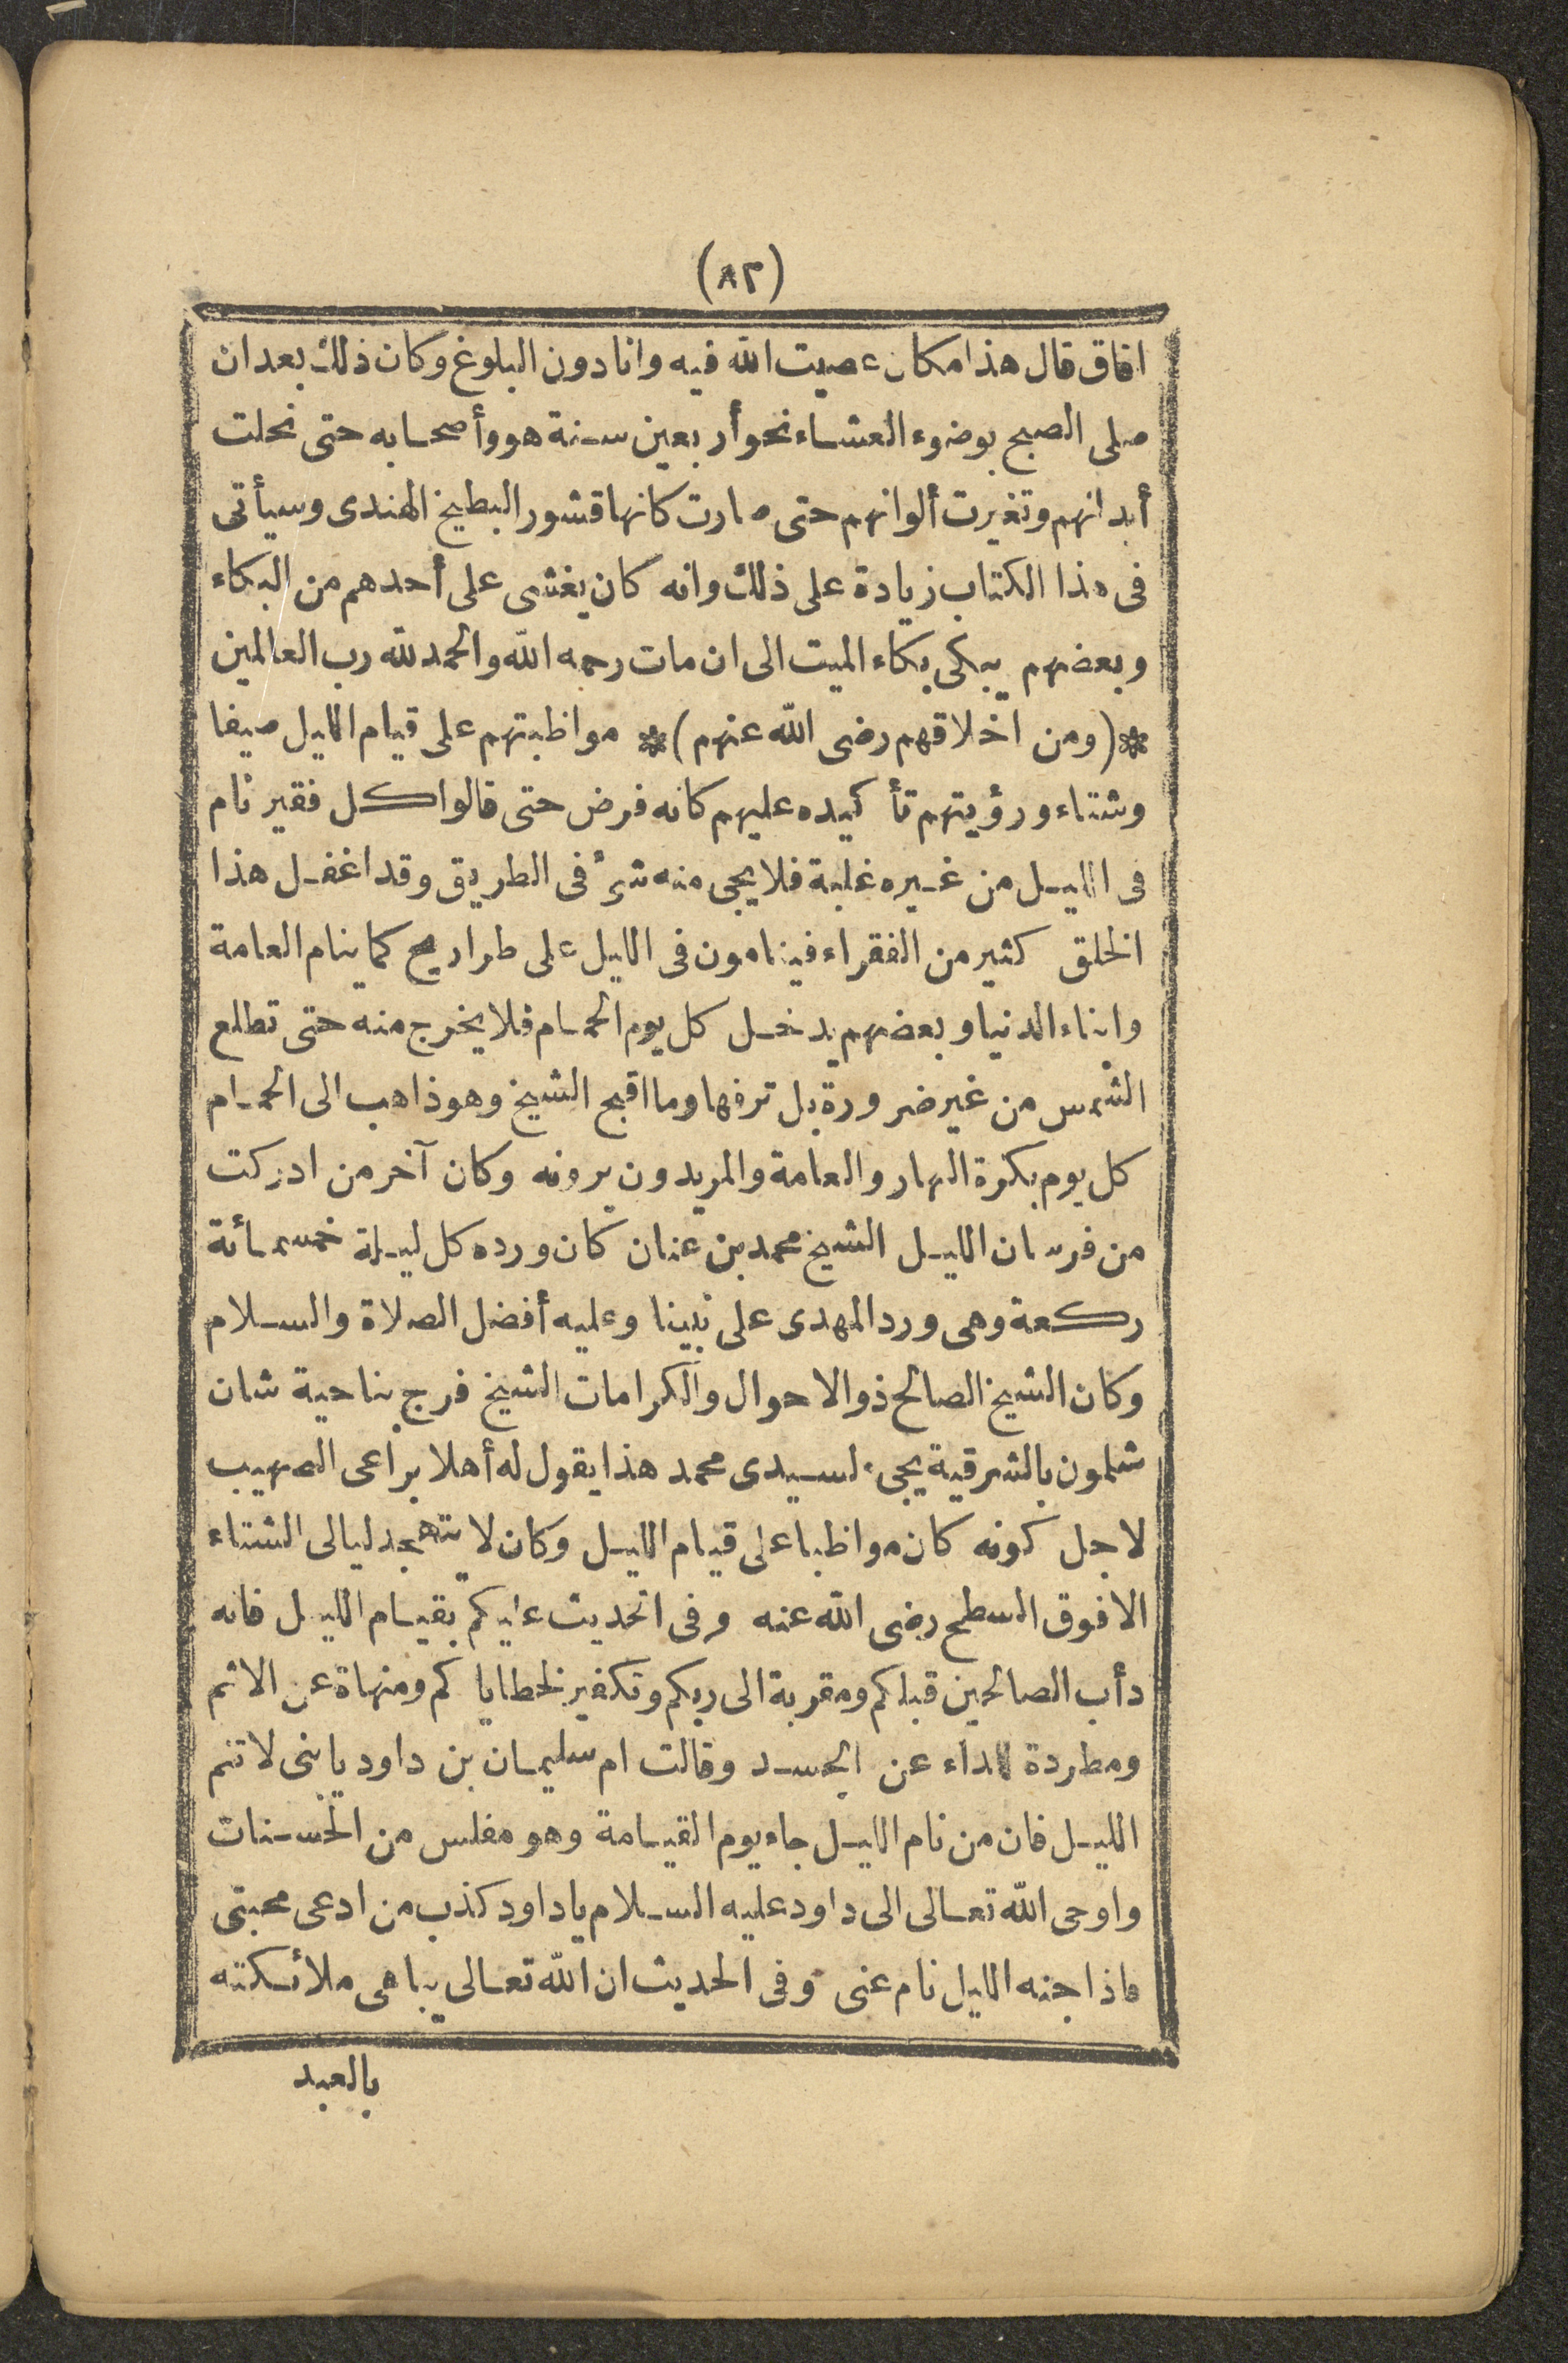 (٨٢)
افاق قال هذا مكان عصيت الله فيه وانا دون البلوغ وكان ذلك بعد ان
صلى الصبح بوضوء العشاء نحو أربعين سنة هو وأصحابه حتى نحلت
أبدانهم وتغيرت ألوانهم حتى صارت كانها قشور البطيخ الهندى وسيأتى
فى هذا الكتاب زيادة على ذلك وانه كان يغشى على أحدهم من البكاء
وبعضهم يبكى بكاء الميت الى ان مات رحمه الله والحمد لله رب العالمين
*(ومن اخلاقهم رضى الله عنهم)* مواظبتهم على قيام الليل صيفا
وشتاء ورؤيتهم تأكيده عليهم كانه فرض حتى قالوا كل فقير نام
فى الليل من غيره غلبة فلا يجى منه شئ فى الطريق وقد اغفل هذا
الخلق كثير من الفقراء فينامون فى الليل على طراريح كما ينام العامة
وابناء الدنيا وبعضهم يدخل كل يوم الحمام فلا يخرج منه حتى تطلع
الشمس من غير ضرورة بل ترفها وما اقبح الشيخ وهو ذاهب الى الحمام
كل يوم بكرة النهار والعامة والمريدون يرونه وكان آخر من ادركت
من فرسان الليل الشيخ محمد بن عنان كان ورده كل ليلة خمسمائة
ركعة وهى ورد المهدى على نبينا وعليه أفضل الصلاة والسلام
وكان الشيخ الصالح ذو الاحوال والكرامات الشيخ فرج بناحية شان
شلمون بالشرقية يجىء لسيدى محمد هذا يقول له أهلا براعى الصهيب
لاجل كونه كان مواظبا على قيام الليل وكان لا يتهجد ليالى الشتاء
الا فوق السطح رضى الله عنه وفى الحديث عليكم بقيام الليل فانه
دأب الصالحين قبلكم ومقربة الى ربكم وتكفير لخطاياكم ومنهاة عن الاثم
ومطردة للداء عن الجسد وقالت ام سليمان بن داود يا بنى لا تنم
الليل فان من نام الليل جاء يوم القيامة وهو مفلس من الحسنات
واوحى الله تعالى الى داود عليه السلام يا داود كذب من ادعى محبتى
فاذا جنه الليل نام عنى وفى الحديث ان الله تعالى يباهى ملائكته
بالعبد